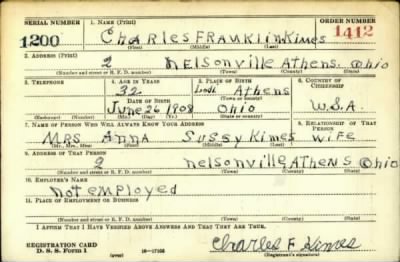 SERIAL NUMBER 1. NAME (Print) ORDER NUMBER
1200 Charles FRANKlin Kimes 1412
(First) (Middle) (Last)
2. ADDRESS (Print)
2 nelsonville Athens. Ohio
(Number and street or R. F. D. number) (Town) (County) (State)
3. TELEPHONE 4. AGE IN YEARS 5. PLACE OF BIRTH 6. COUNTRY OF CITIZENSHIP
32 Athens
DATE OF BIRTH (Town or county)
June 26 1908 Ohio U.S.A.
(Exchange) (Number) (Mo.) (Day) (Yr.) (State or country)
7. NAME OF PERSON WHO WILL ALWAYS KNOW YOUR ADDRESS 8. RELATIONSHIP OF THAT PERSON
MRS Anna Sussy Kimes wife
(Mr., Mrs., Miss) (First) (Middle) (Last)
9. ADDRESS OF THAT PERSON
2 nelsonville AThenS Ohio
(Number and street or R. F. D. number) (Town) (County) (State)
10. EMPLOYER'S NAME
not employed
11. PLACE OF EMPLOYMENT OR BUSINESS
(Number and street or R. F. D. number) (Town) (County) (State)
I AFFIRM THAT I HAVE VERIFIED ABOVE ANSWERS AND THAT THEY ARE TRUE.
REGISTRATION CARD
D. S. S. Form 1 (over) Charles F Kimes
(Registrant's signature)